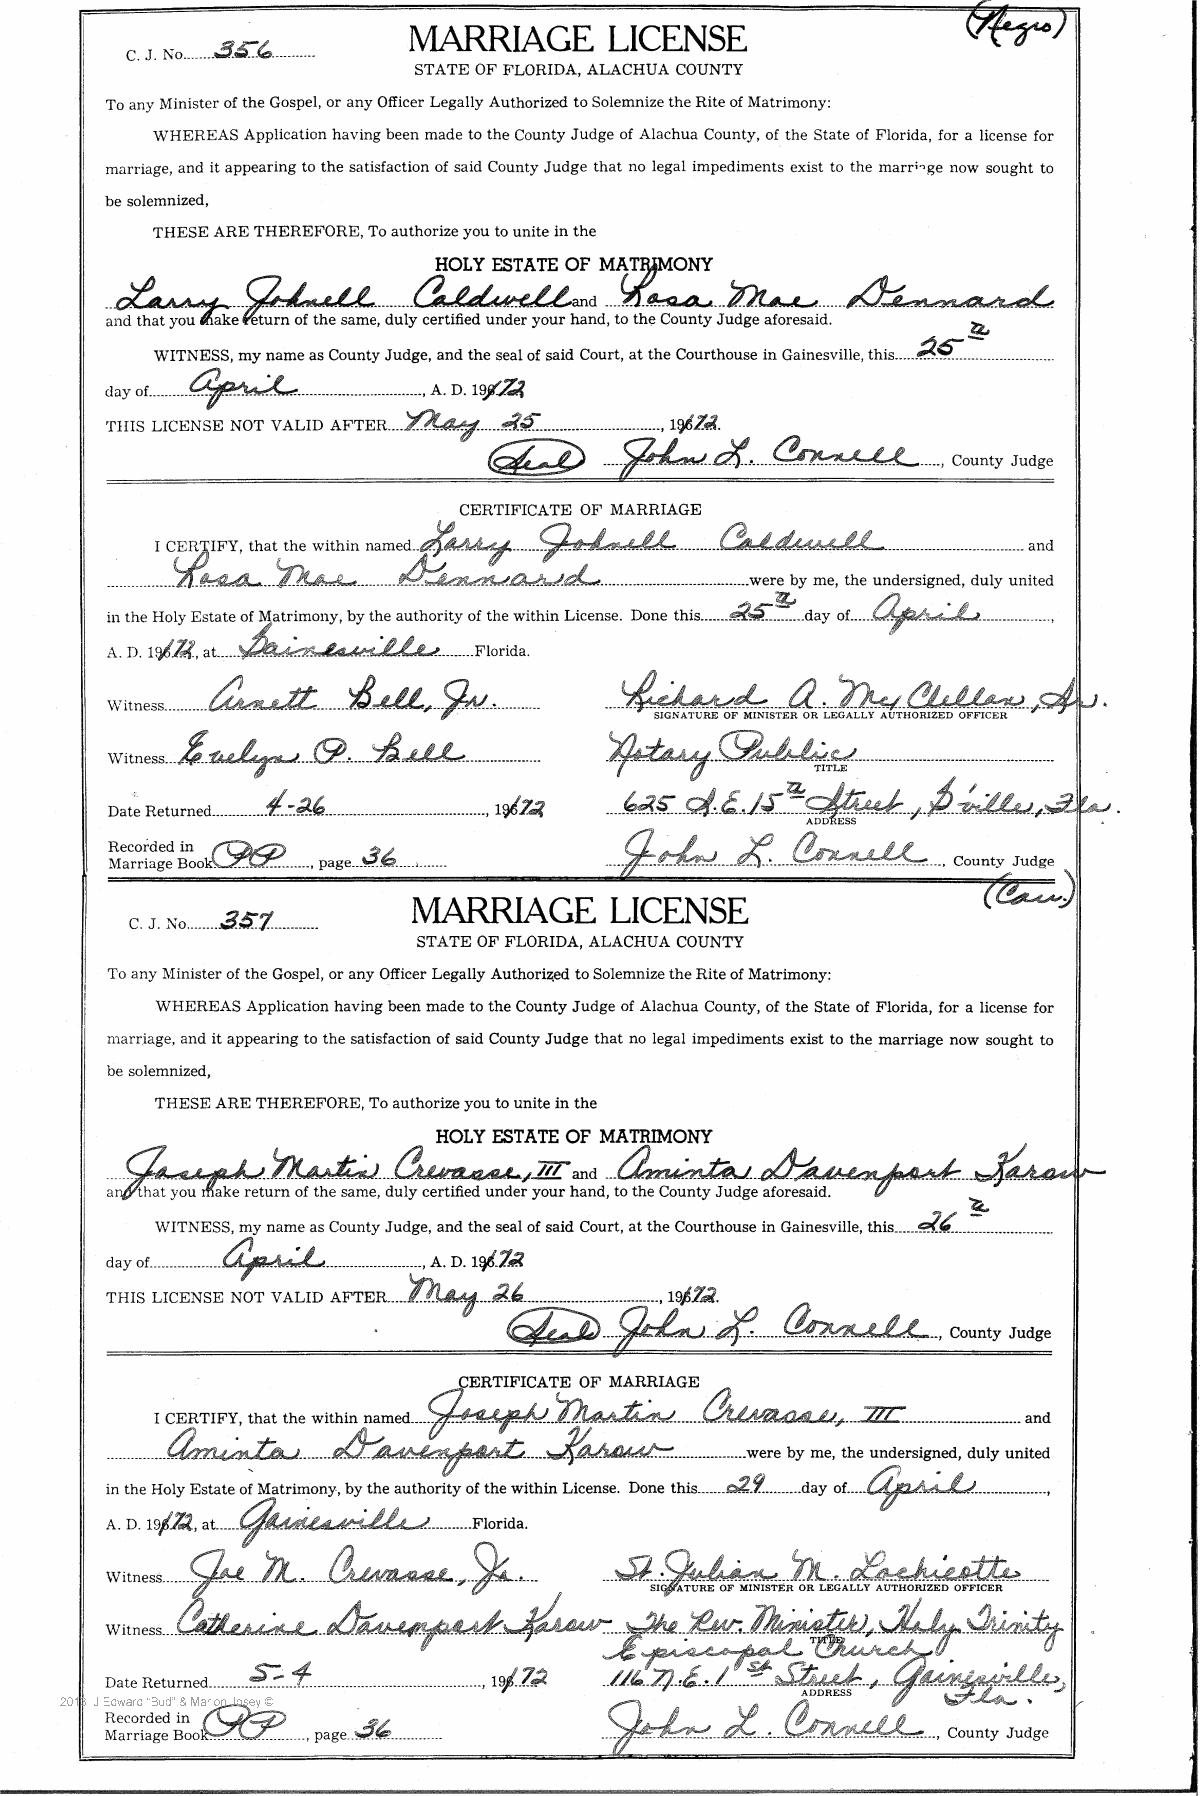 (Negro)
C. J. No. 356 MARRIAGE LICENSE
STATE OF FLORIDA, ALACHUA COUNTY
To any Minister of the Gospel, or any Officer Legally Authorized to Solemnize the Rite of Matrimony:
WHEREAS Application having been made to the County Judge of Alachua County, of the State of Florida, for a license for
marriage, and it appearing to the satisfaction of said County Judge that no legal impediments exist to the marriage now sought to
be solemnized,
THESE ARE THEREFORE, To authorize you to unite in the
HOLY ESTATE OF MATRIMONY
Larry Johnell Caldwell and Rosa Mae Dennard
and that you make return of the same, duly certified under your hand, to the County Judge aforesaid.
WITNESS, my name as County Judge, and the seal of said Court, at the Courthouse in Gainesville, this 25th
day of April, A. D. 1972
THIS LICENSE NOT VALID AFTER May 25, 1972.
(Seal) John L. Connell, County Judge
CERTIFICATE OF MARRIAGE
I CERTIFY, that the within named Larry Johnell Caldwell and
Rosa Mae Dennard were by me, the undersigned, duly united
in the Holy Estate of Matrimony, by the authority of the within License. Done this 25th day of April,
A. D. 1972, at Gainesville Florida.
Witness Arnett Bell, Jr. Richard A. McClellan, Sr.
SIGNATURE OF MINISTER OR LEGALLY AUTHORIZED OFFICER
Witness Evelyn P. Bell Notary Public
TITLE
Date Returned 4-26, 1972 625 S.E. 15th Street, G'ville, Fla.
ADDRESS
Recorded in
Marriage Book PP, page 36 John L. Connell, County Judge
(Cau.)
C. J. No. 357 MARRIAGE LICENSE
STATE OF FLORIDA, ALACHUA COUNTY
To any Minister of the Gospel, or any Officer Legally Authorized to Solemnize the Rite of Matrimony:
WHEREAS Application having been made to the County Judge of Alachua County, of the State of Florida, for a license for
marriage, and it appearing to the satisfaction of said County Judge that no legal impediments exist to the marriage now sought to
be solemnized,
THESE ARE THEREFORE, To authorize you to unite in the
HOLY ESTATE OF MATRIMONY
Joseph Martin Crevasse, III and Aminta Davenport Karow
and that you make return of the same, duly certified under your hand, to the County Judge aforesaid.
WITNESS, my name as County Judge, and the seal of said Court, at the Courthouse in Gainesville, this 26th
day of April, A. D. 1972
THIS LICENSE NOT VALID AFTER May 26, 1972.
(Seal) John L. Connell, County Judge
CERTIFICATE OF MARRIAGE
I CERTIFY, that the within named Joseph Martin Crevasse, III and
Aminta Davenport Karow were by me, the undersigned, duly united
in the Holy Estate of Matrimony, by the authority of the within License. Done this 29 day of April,
A. D. 1972, at Gainesville Florida.
Witness Joe M. Crevasse, Jr. St. Julian M. Lachicotte
SIGNATURE OF MINISTER OR LEGALLY AUTHORIZED OFFICER
Witness Catherine Davenport Karow The Rev. Minister, Holy Trinity
Episcopal Church
TITLE
Date Returned 5-4, 1972 116 N.E. 1st Street, Gainesville,
ADDRESS Fla.
J Edward "Bud" & Marion Josey ©
Recorded in
Marriage Book PP, page 36 John L. Connell, County Judge